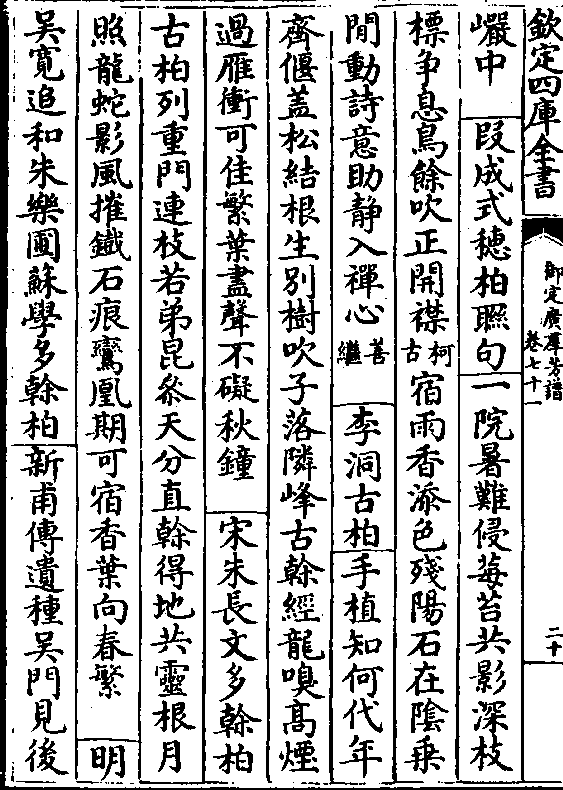 欽定四庫全書
御定廣羣芳譜
卷七十一
二十
巖中　段成式穗柏聮句一院暑難侵莓苔共影深枝
標争息鳥餘吹正開襟柯古宿雨香添色殘陽石在陰乗
閒動詩意助静入禪心善繼　李洞古柏手植知何代年
齊偃蓋松結根生別樹吹子落隣峰古榦經龍嗅髙煙
過雁衝可佳繁葉盡聲不礙秋鐘　宋朱長文多榦柏
古柏列重門連枝若弟昆叅天分直榦得地共靈根月
照龍蛇影風摧鐵石痕鸞凰期可宿香葉向春繁　明
吳寛追和朱樂圃蘇學多榦柏新甫傳遺種吳門見後